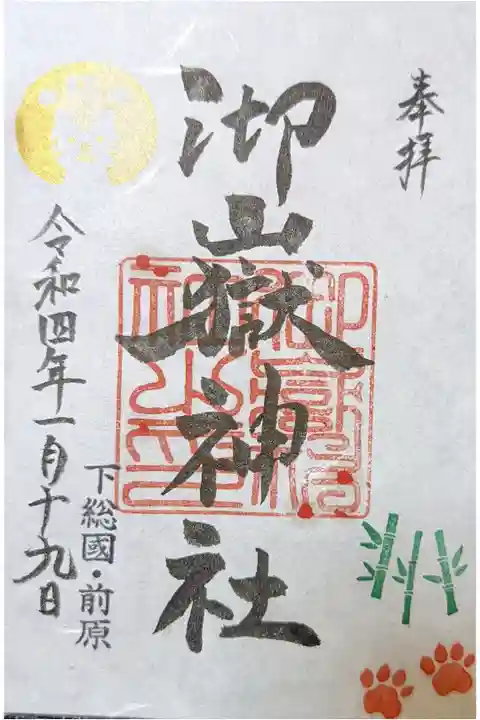 奉拝
御嶽神社
令和四年一月十九日
下総國・前原